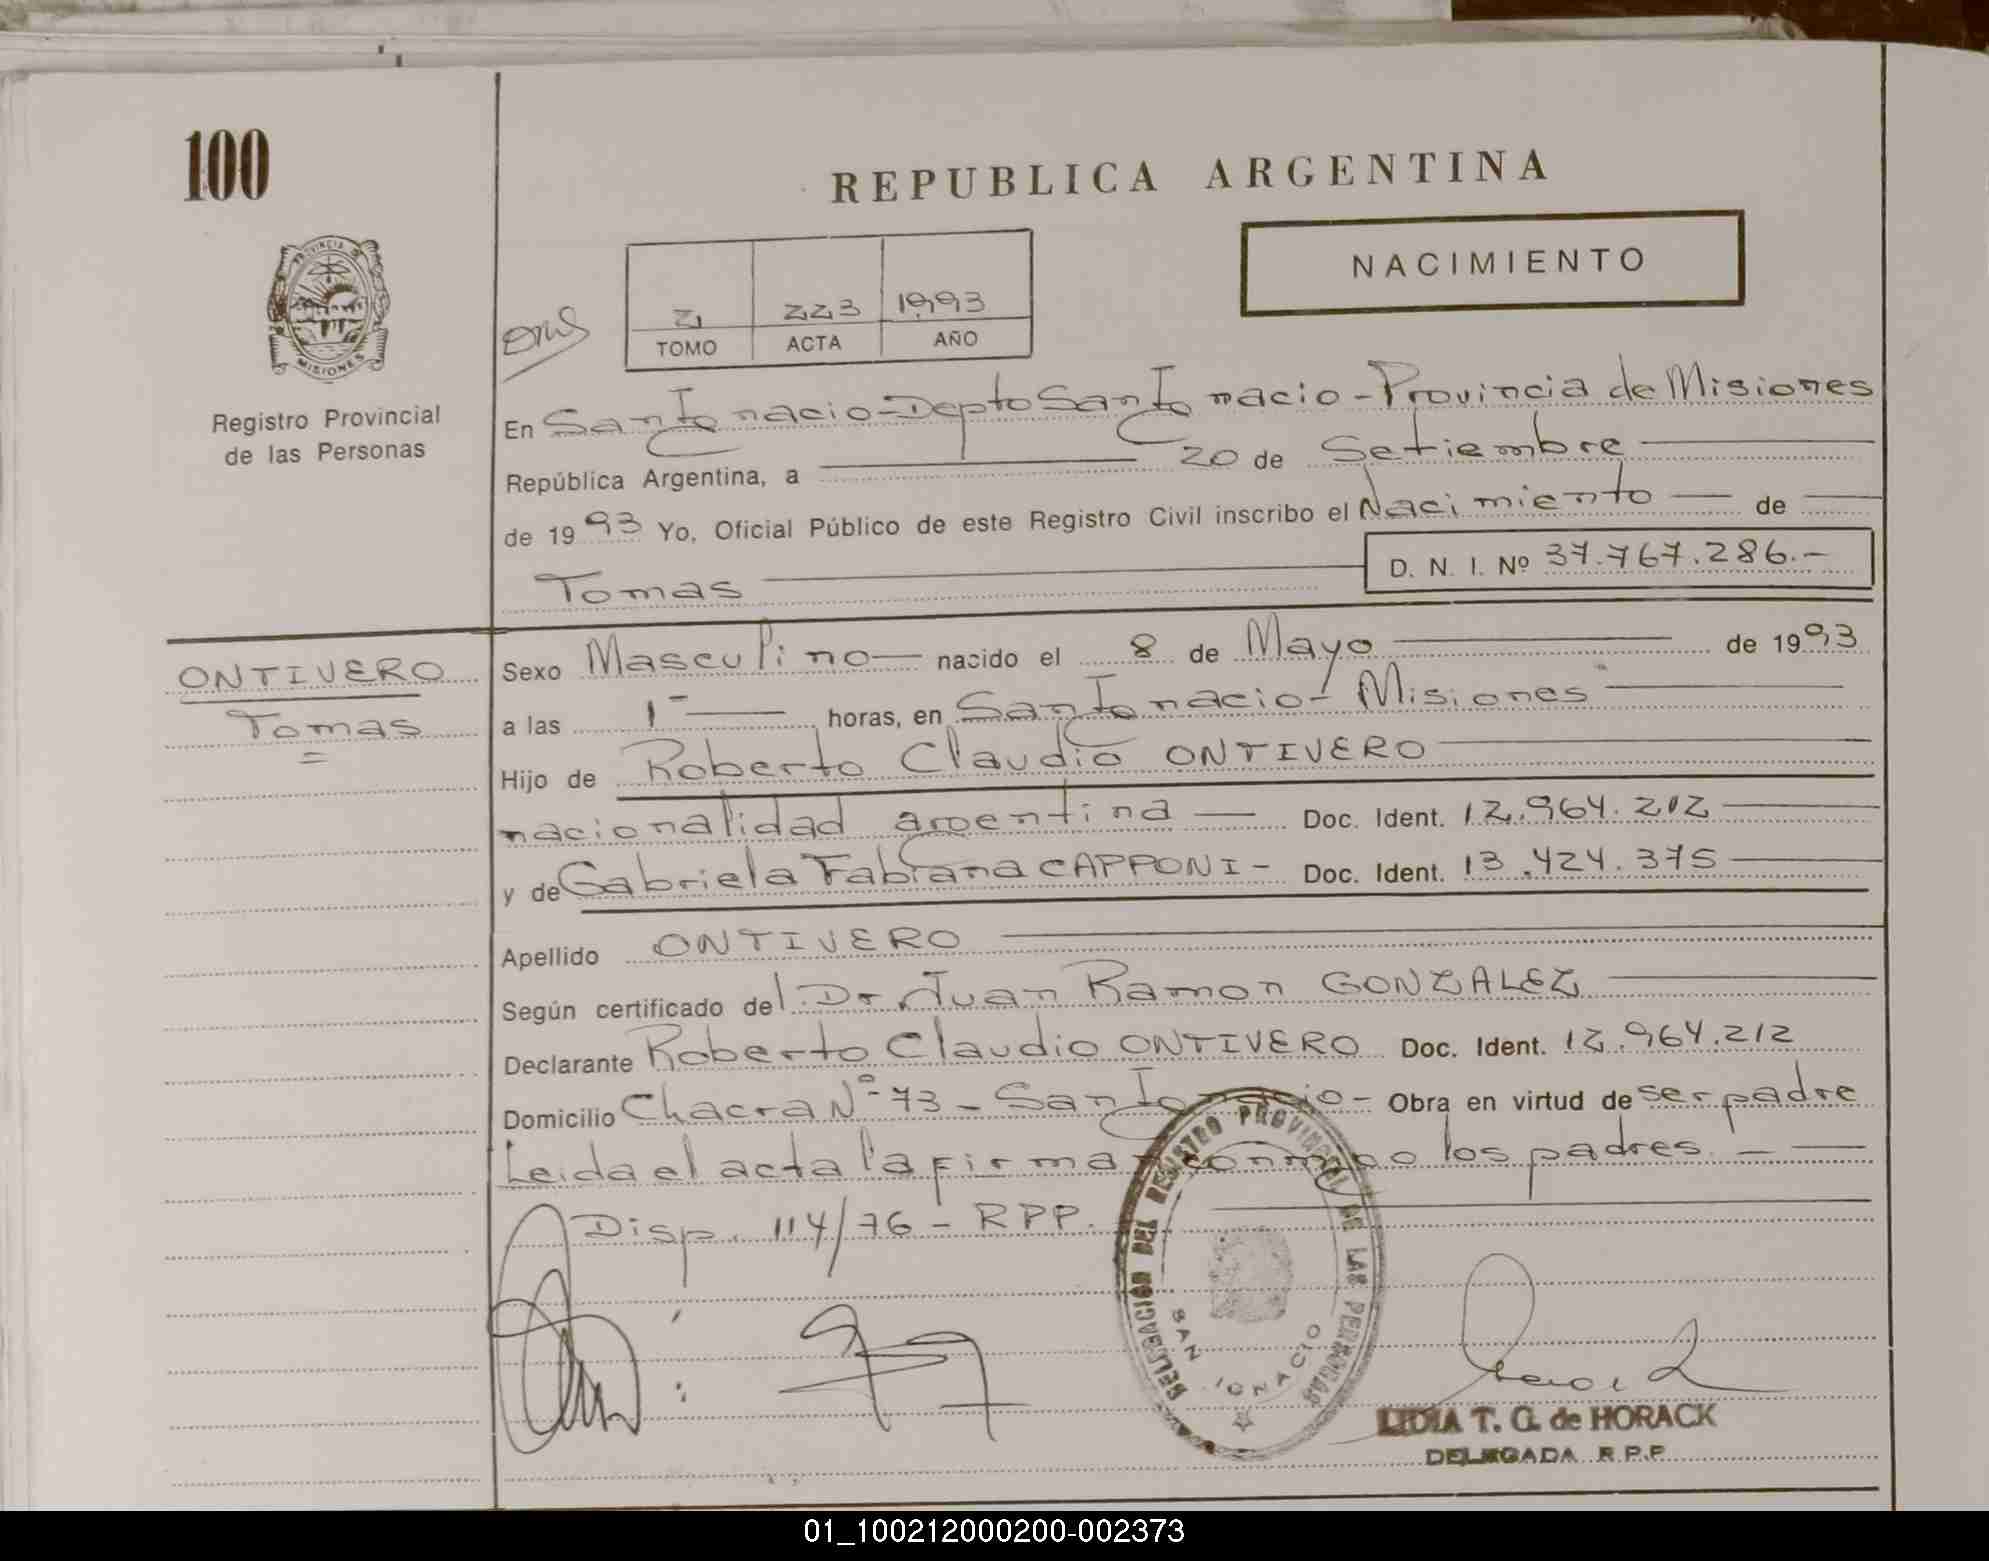 100
REPUBLICA ARGENTINA
NACIMIENTO
PROVINCIA DE
MISIONES
Registro Provincial
de las Personas
2 223 1993
TOMO ACTA AÑO
En San Ignacio - Depto San Ignacio - Provincia de Misiones
República Argentina, a 20 de Setiembre
de 1993 Yo, Oficial Público de este Registro Civil inscribo el Nacimiento de
Tomas D. N. I. Nº 37.767.286.-
ONTIVERO
Tomas
Sexo Masculino nacido el 8 de Mayo de 1993
a las 1- horas, en San Ignacio - Misiones
Hijo de Roberto Claudio ONTIVERO
nacionalidad argentina Doc. Ident. 12.964.212
y de Gabriela Fabiana CAPPONI - Doc. Ident. 13.424.375
Apellido ONTIVERO
Según certificado del Dr. Juan Ramon GONZALEZ
Declarante Roberto Claudio ONTIVERO Doc. Ident. 12.964.212
Domicilio Chacra Nº 73 - San Ignacio - Obra en virtud de ser padre
Leida el acta la firman conmigo los padres. -
Disp. 114/76 - RPP.
DELEGACION DEL REGISTRO PROVINCIAL DE LAS PERSONAS
SAN IGNACIO
LIDIA T. G. de HORACK
DELEGADA R.P.P.
01_100212000200-002373